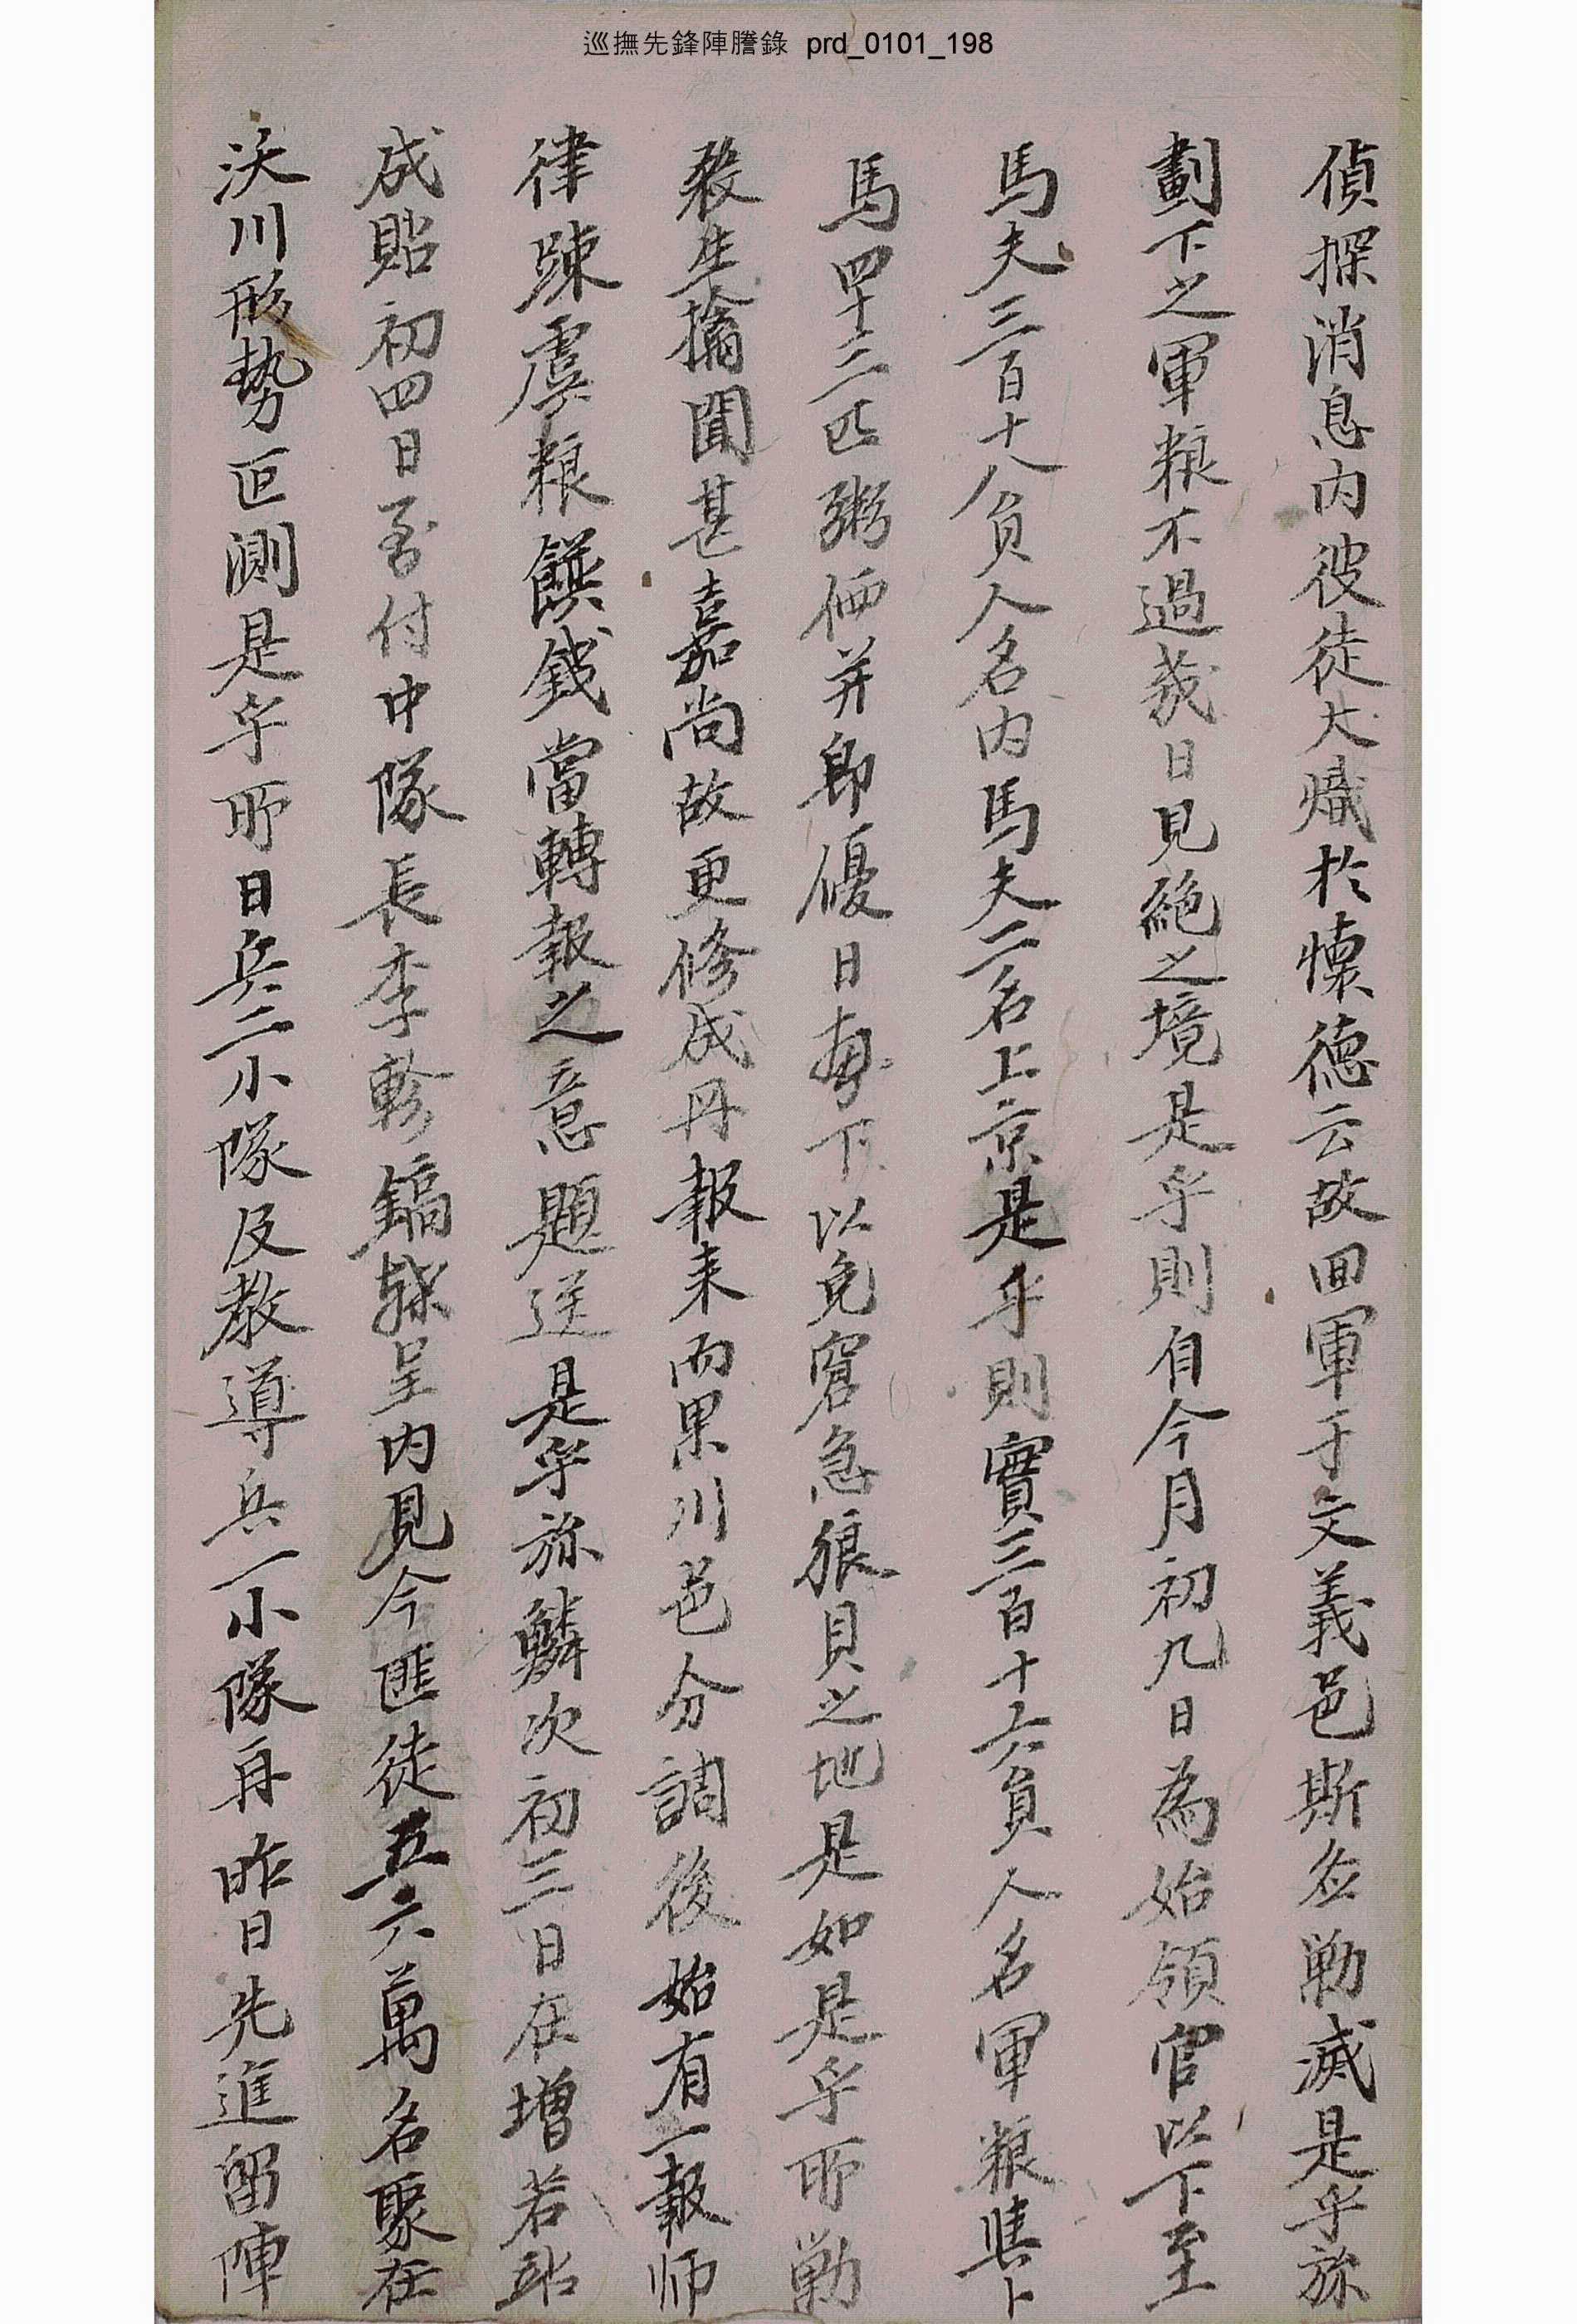 巡撫先鋒陣謄錄 prd_0101_198
偵探消息內彼徒大熾於懷德云故回軍于文義邑斯兮勦滅是乎旀
劃下之軍粮不過幾日見絕之境是乎則自今月初九日為始領官以下至
馬夫三百十八員人名內馬夫二名上京是乎則實三百十六員人名軍粮與卜
馬四十三匹粥価并卽優日劃下以免窘急狼貝之地是如是乎所勦
殺生擒聞甚嘉尚故更修成冊報來而果川邑分調後始有一報师
律踈虞粮饌錢當轉報之意題送是乎旀鱗次初三日在增若站
成貼初四日到付中隊長李軫鎬牒呈內見今匪徒五六萬名聚在
沃川形勢叵測是乎所日兵二小隊及教導兵一小隊再昨日先進留陣